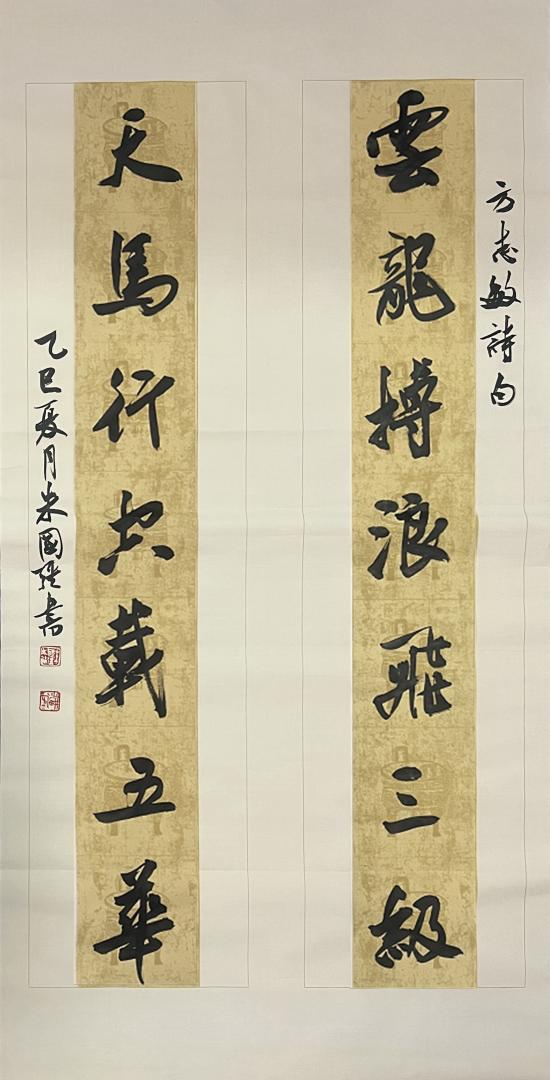 方志敏詩句
雲龍搏浪飛三級
天馬行空載五華
乙巳夏月米國强書